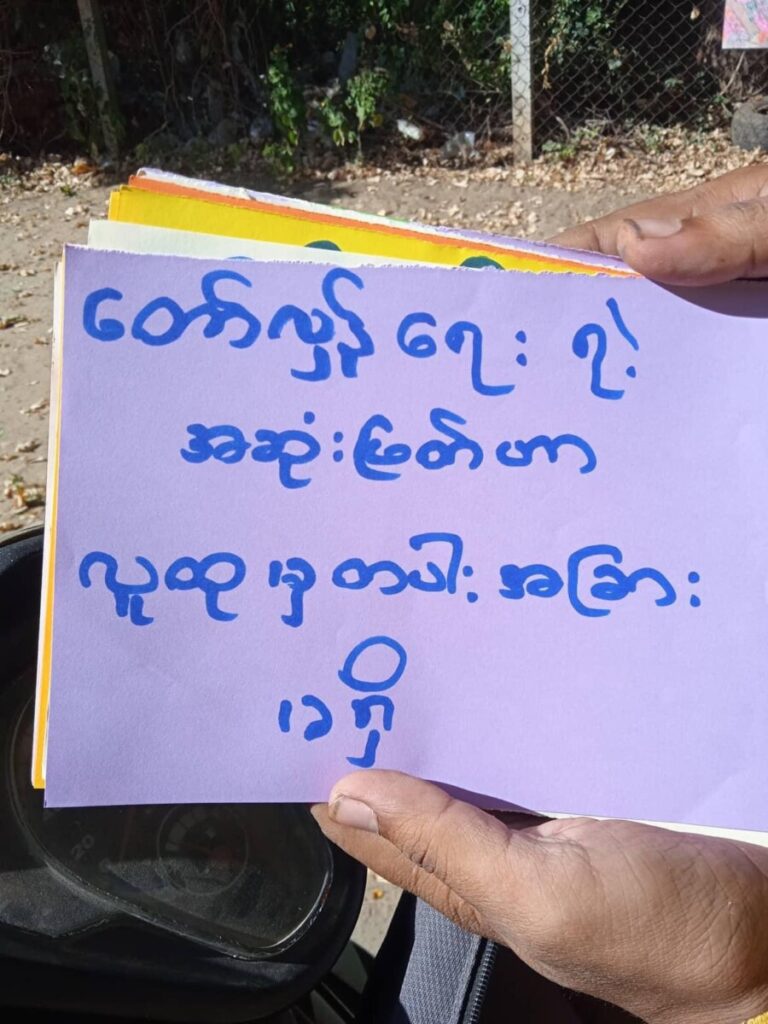 တော်လှန်ရေး ရဲ့
အဆုံးဖြတ်ဟာ
လူထုမှတပါးအခြား
မရှိ